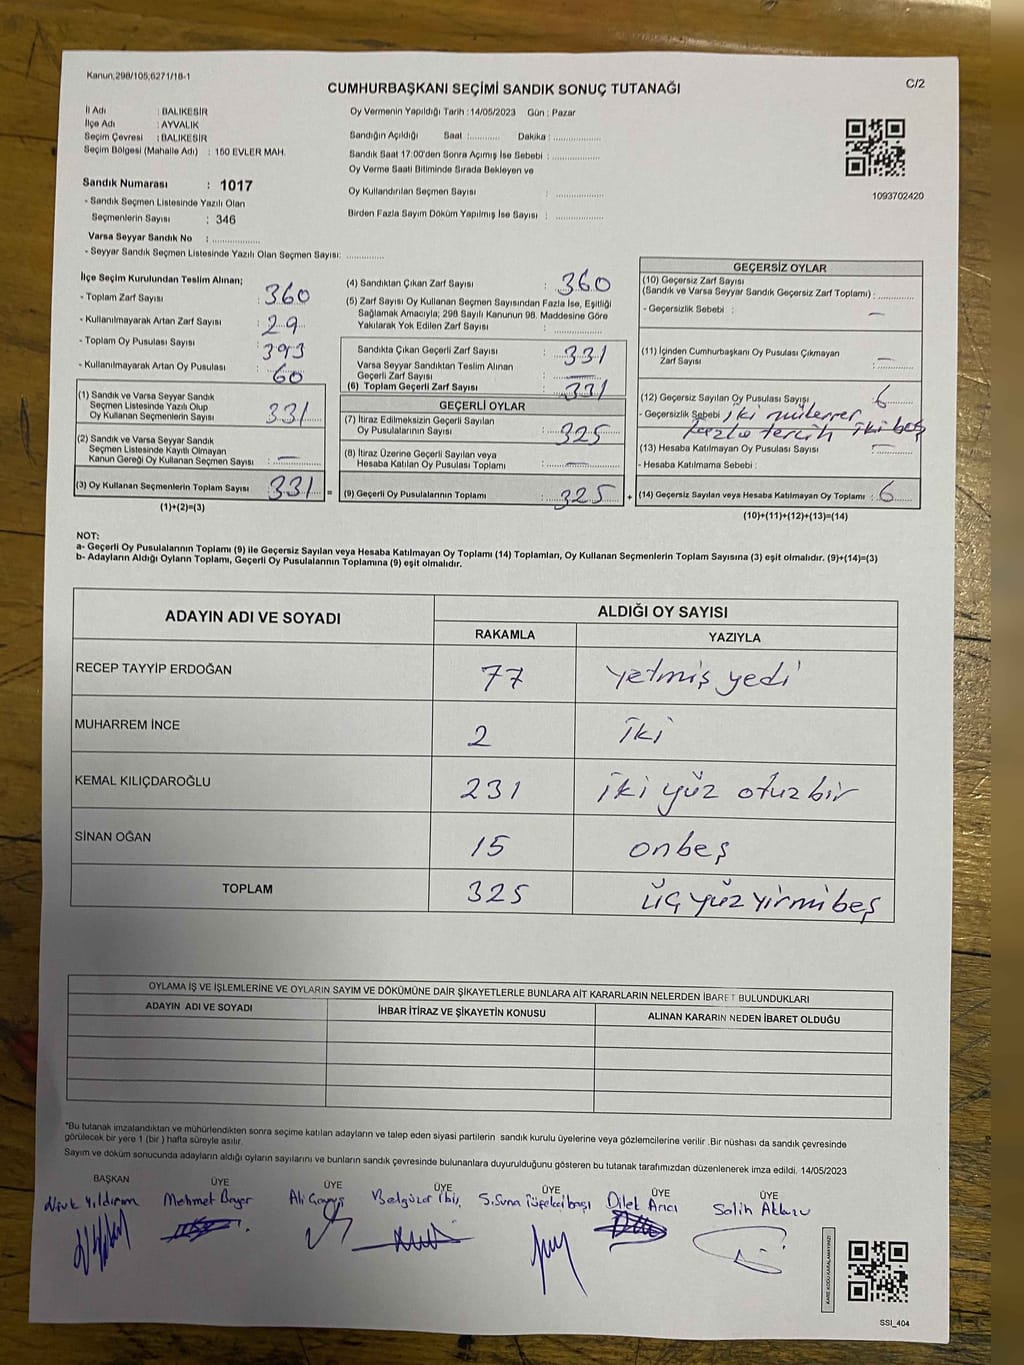 Kanun,298/105,6271/18-1
CUMHURBAŞKANI SEÇİMİ SANDIK SONUÇ TUTANAĞI
C/2
İl Adı : BALIKESİR
İlçe Adı : AYVALIK
Seçim Çevresi : BALIKESİR
Seçim Bölgesi (Mahalle Adı) : 150 EVLER MAH.
Oy Vermenin Yapıldığı Tarih :14/05/2023 Gün : Pazar
Sandığın Açıldığı Saat :........... Dakika : ......................
Sandık Saat 17:00'den Sonra Açımış İse Sebebi : ................
Oy Verme Saati Bitiminde Sırada Bekleyen ve
Oy Kullandırılan Seçmen Sayısı : ................
Birden Fazla Sayım Döküm Yapılmış İse Sayısı : ................
1093702420
Sandık Numarası : 1017
- Sandık Seçmen Listesinde Yazılı Olan
Seçmenlerin Sayısı : 346
Varsa Seyyar Sandık No : ................
- Seyyar Sandık Seçmen Listesinde Yazılı Olan Seçmen Sayısı: .............
İlçe Seçim Kurulundan Teslim Alınan;
- Toplam Zarf Sayısı : 360
- Kullanılmayarak Artan Zarf Sayısı : 29
- Toplam Oy Pusulası Sayısı : 393
- Kullanılmayarak Artan Oy Pusulası : 60
(1) Sandık ve Varsa Seyyar Sandık
Seçmen Listesinde Yazılı Olup
Oy Kullanan Seçmenlerin Sayısı : 331
(2) Sandık ve Varsa Seyyar Sandık
Seçmen Listesinde Kayıtlı Olmayan
Kanun Gereği Oy Kullanan Seçmen Sayısı : —
(3) Oy Kullanan Seçmenlerin Toplam Sayısı : 331 =
(1)+(2)=(3)
(4) Sandıktan Çıkan Zarf Sayısı : 360
(5) Zarf Sayısı Oy Kullanan Seçmen Sayısından Fazla İse, Eşitliği
Sağlamak Amacıyla; 298 Sayılı Kanunun 98. Maddesine Göre
Yakılarak Yok Edilen Zarf Sayısı : ................
Sandıkta Çıkan Geçerli Zarf Sayısı : 331
Varsa Seyyar Sandıktan Teslim Alınan
Geçerli Zarf Sayısı : —
(6) Toplam Geçerli Zarf Sayısı : 331
GEÇERLİ OYLAR
(7) İtiraz Edilmeksizin Geçerli Sayılan
Oy Pusulalarının Sayısı : 325
(8) İtiraz Üzerine Geçerli Sayılan veya
Hesaba Katılan Oy Pusulası Toplamı : —
(9) Geçerli Oy Pusulalarının Toplamı : 325 +
GEÇERSİZ OYLAR
(10) Geçersiz Zarf Sayısı
(Sandık ve Varsa Seyyar Sandık Geçersiz Zarf Toplamı) : ............
- Geçersizlik Sebebi : —
(11) İçinden Cumhurbaşkanı Oy Pusulası Çıkmayan
Zarf Sayısı : —
(12) Geçersiz Sayılan Oy Pusulası Sayısı : 6
- Geçersizlik Sebebi : iki mükerrer
fazla tercih iki beş
(13) Hesaba Katılmayan Oy Pusulası Sayısı : —
- Hesaba Katılmama Sebebi :
(14) Geçersiz Sayılan veya Hesaba Katılmayan Oy Toplamı : 6
(10)+(11)+(12)+(13)=(14)
NOT:
a- Geçerli Oy Pusulalarının Toplamı (9) ile Geçersiz Sayılan veya Hesaba Katılmayan Oy Toplamı (14) Toplamları, Oy Kullanan Seçmenlerin Toplam Sayısına (3) eşit olmalıdır. (9)+(14)=(3)
b- Adayların Aldığı Oyların Toplamı, Geçerli Oy Pusulalarının Toplamına (9) eşit olmalıdır.
ADAYIN ADI VE SOYADI
ALDIĞI OY SAYISI
RAKAMLA YAZIYLA
RECEP TAYYİP ERDOĞAN 77 yetmiş yedi
MUHARREM İNCE 2 iki
KEMAL KILIÇDAROĞLU 231 iki yüz otuz bir
SİNAN OĞAN 15 onbeş
TOPLAM 325 üç yüz yirmi beş
OYLAMA İŞ VE İŞLEMLERİNE VE OYLARIN SAYIM VE DÖKÜMÜNE DAİR ŞİKAYETLERLE BUNLARA AİT KARARLARIN NELERDEN İBARET BULUNDUKLARI
ADAYIN ADI VE SOYADI İHBAR İTİRAZ VE ŞİKAYETİN KONUSU ALINAN KARARIN NEDEN İBARET OLDUĞU
*Bu tutanak imzalandıktan ve mühürlendikten sonra seçime katılan adayların ve talep eden siyasi partilerin sandık kurulu üyelerine veya gözlemcilerine verilir .Bir nüshası da sandık çevresinde
görülecek bir yere 1 (bir ) hafta süreyle asılır.
Sayım ve döküm sonucunda adayların aldığı oyların sayılarını ve bunların sandık çevresinde bulunanlara duyurulduğunu gösteren bu tutanak tarafımızdan düzenlenerek imza edildi. 14/05/2023
BAŞKAN ÜYE ÜYE ÜYE ÜYE ÜYE ÜYE
Yıldırım Mehmet Ali S.Suna Tüfekcibaşı Dilek Arıcı Salih
KARE KODU KARALAMAYINIZ!
SSI_404